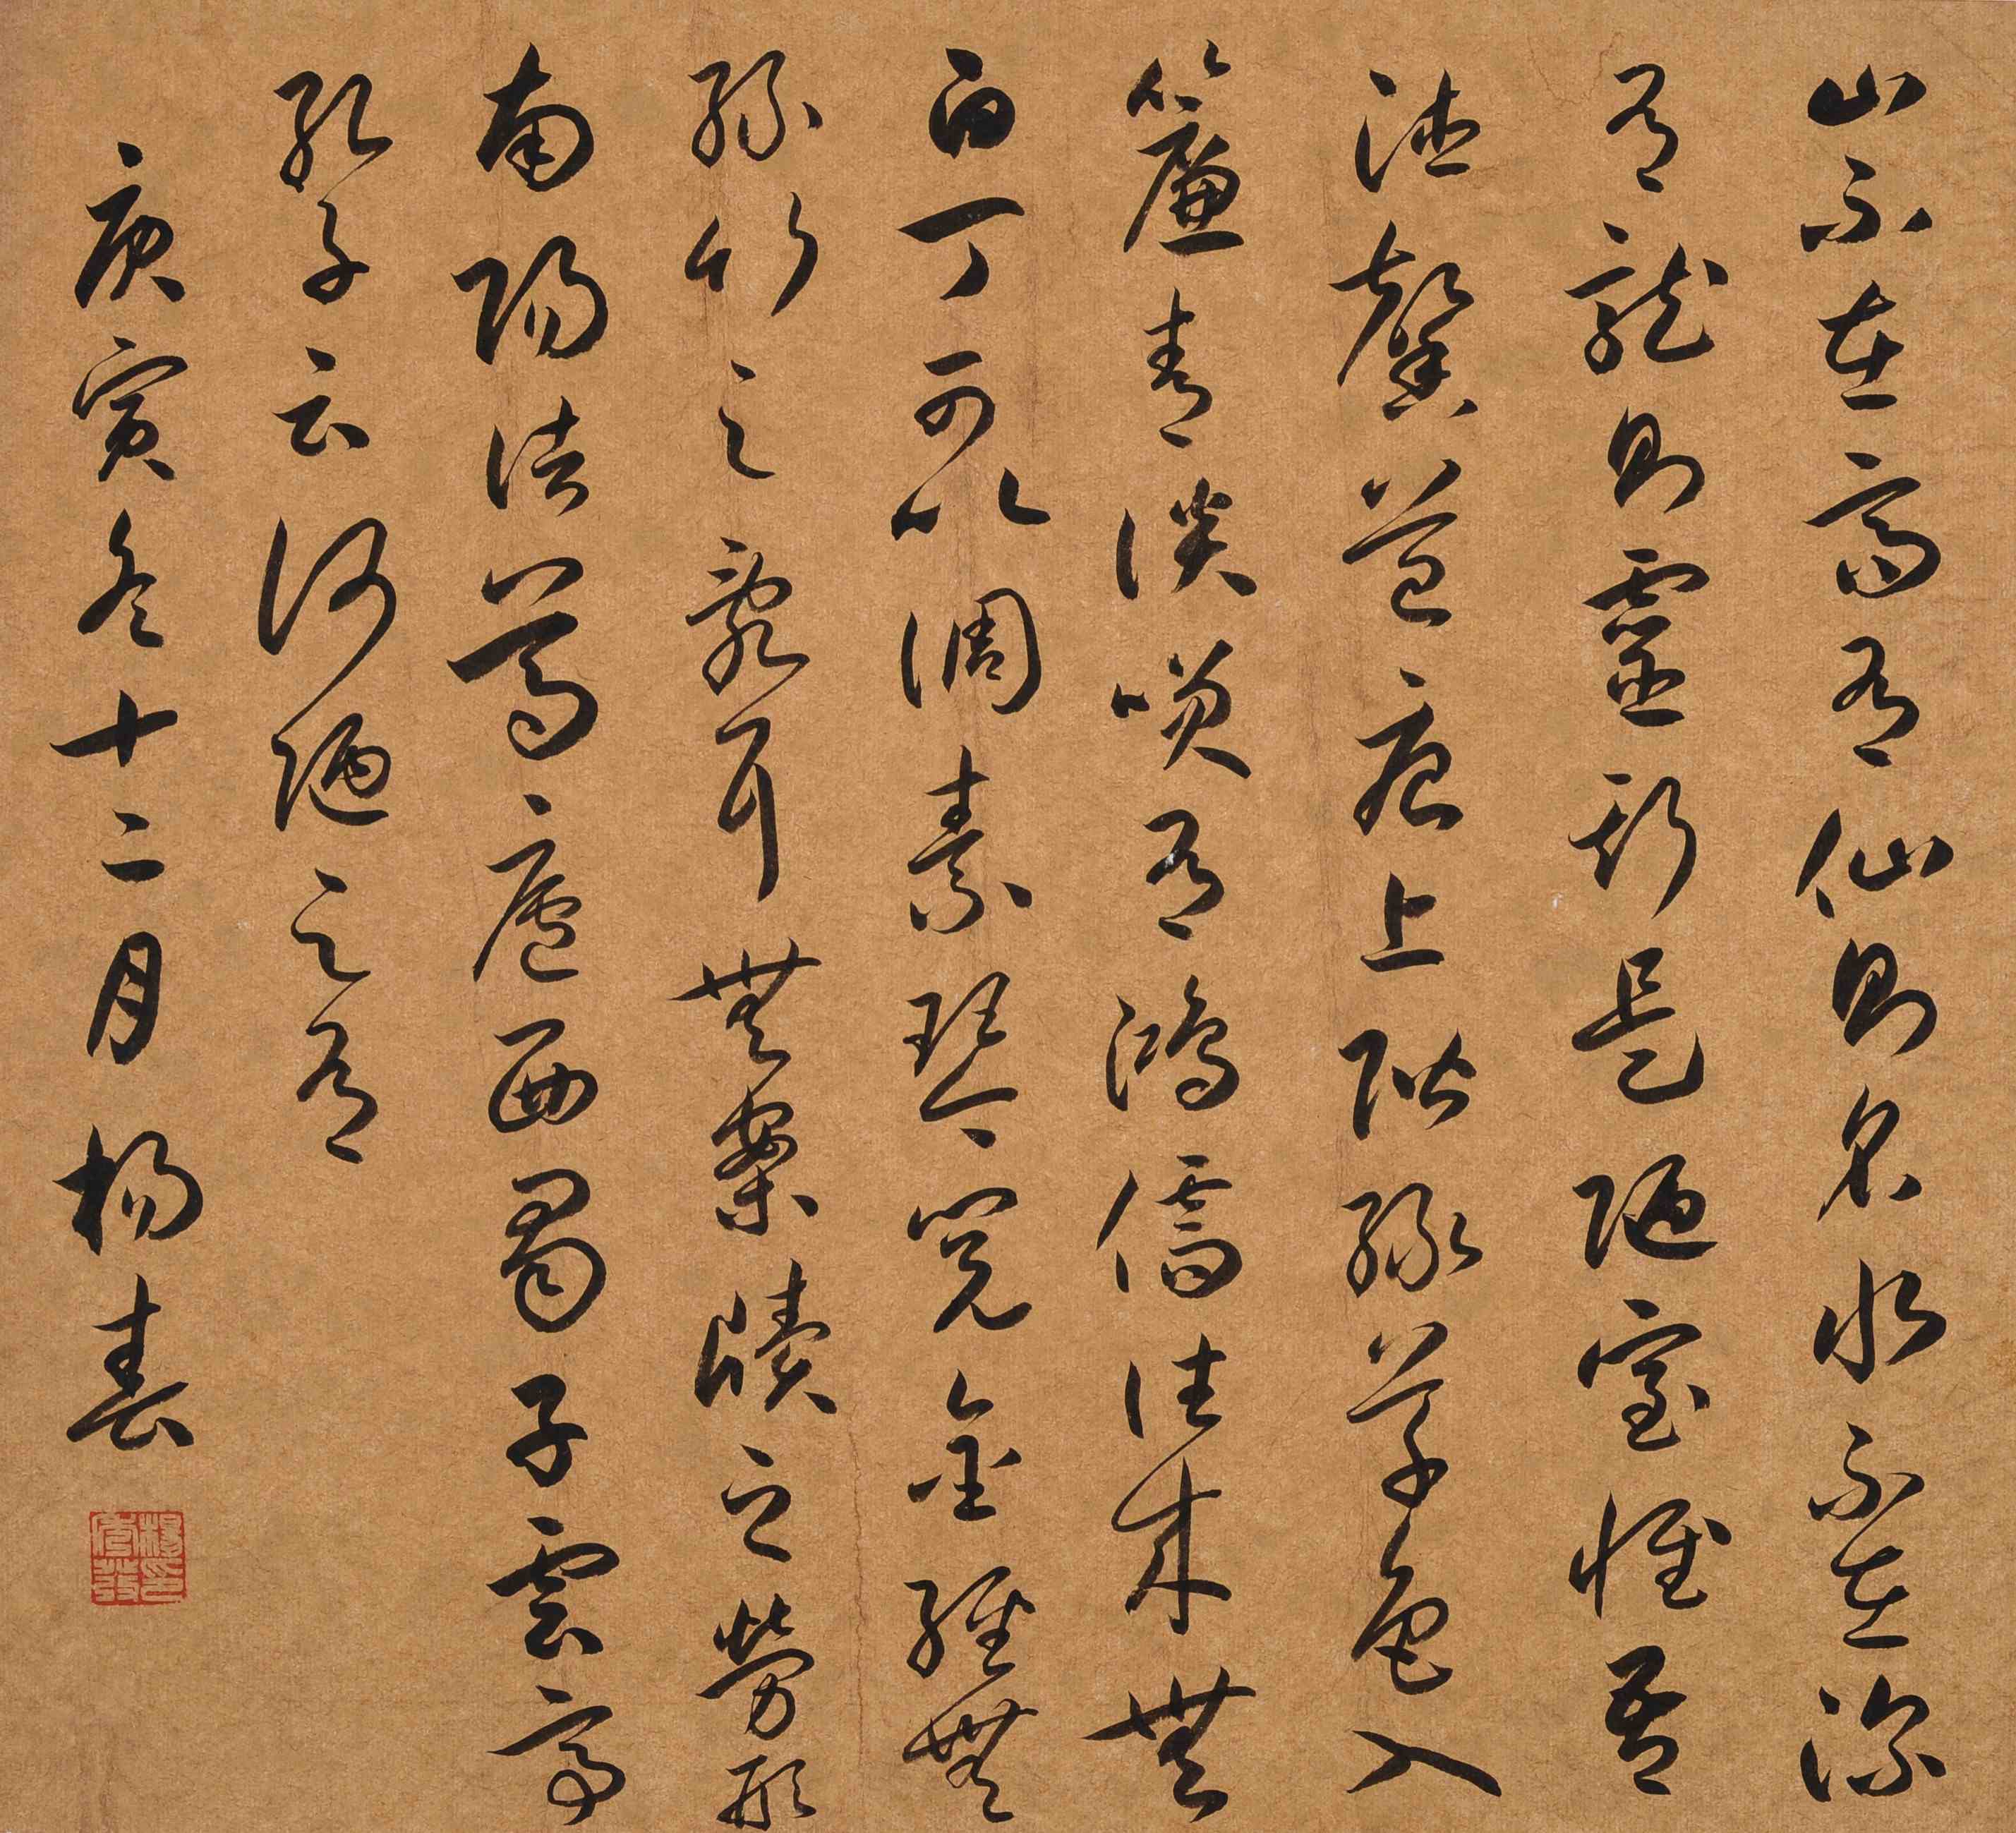 山不在高有仙則名水不在深
有龍則靈斯是陋室惟吾
德馨苔痕上階緑草色入
簾青談咲有鴻儒往來無
白丁可以調素琴閱金經無
絲竹之亂耳無案牘之勞形
南陽諸葛廬西蜀子雲亭
孔子云何陋之有
庚寅冬十二月楊春